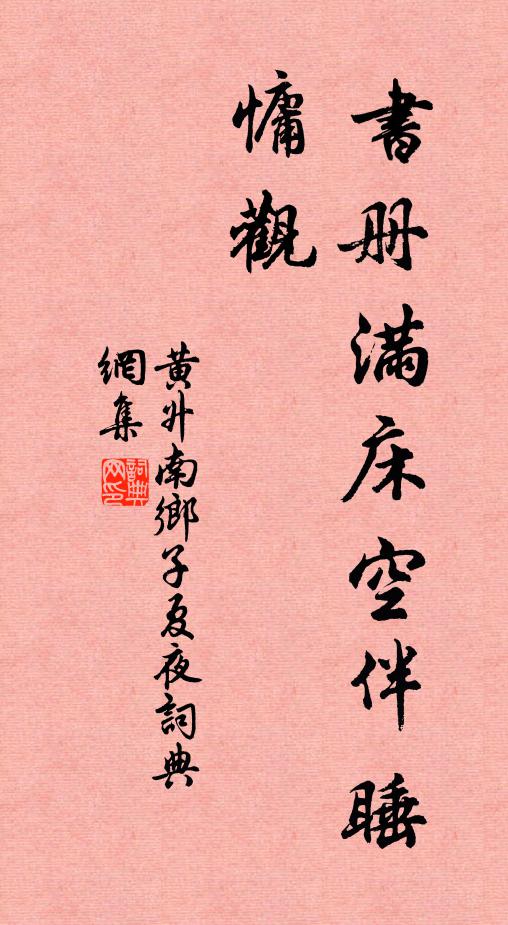 書册滿床空伴睡
慵觀
黃升南鄉子夏夜詞典
網集
詞典
网印